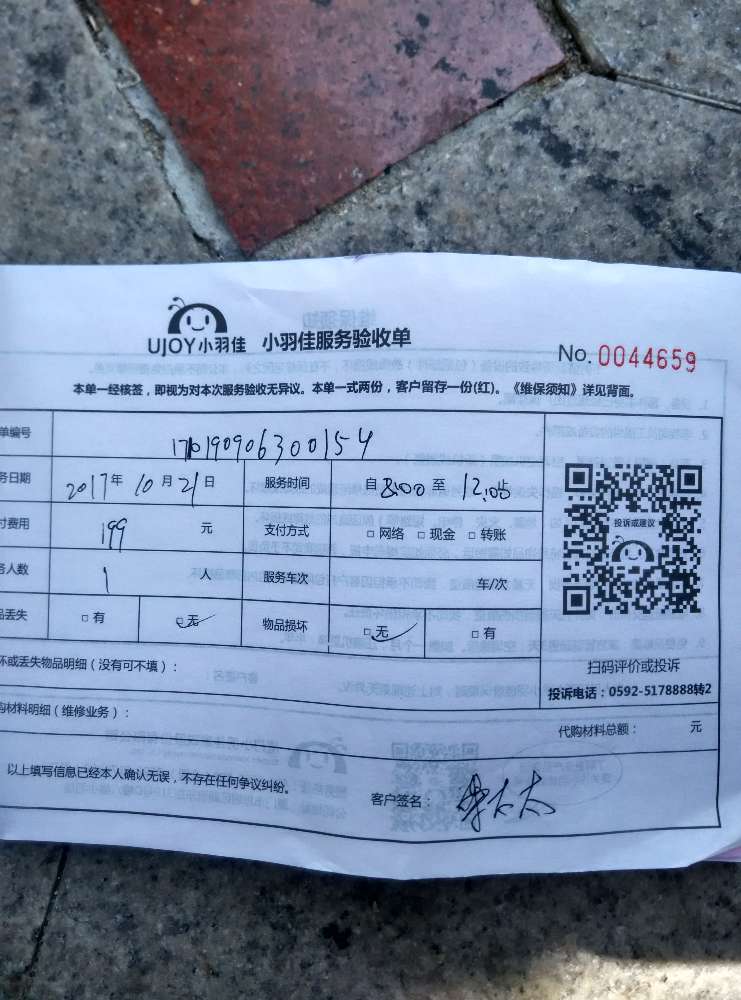 UJOY小羽佳 小羽佳服务验收单
No. 0044659
本单一经核签，即视为对本次服务验收无异议。本单一式两份，客户留存一份(红)。《维保须知》详见背面。
单编号
务日期 2017年 10月 21日 服务时间 自 8:00 至 12:00
付费用 199 元 支付方式 □ 网络 □ 现金 □ 转账
务人数 1 人 服务车次 车/次
品丢失 □ 有 □ 无 物品损坏 □ 无 □ 有
投诉或建议
扫码评价或投诉
投诉电话：0592-5178888转2
坏或丢失物品明细（没有可不填）：
购材料明细（维修业务）：
代购材料总额： 元
以上填写信息已经本人确认无误，不存在任何争议纠纷。
客户签名：